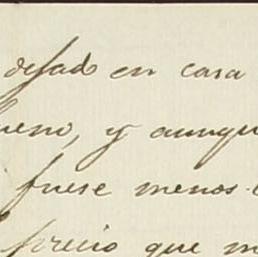 dejado en casa
bueno, y aunqu
fuese menos
precio que m